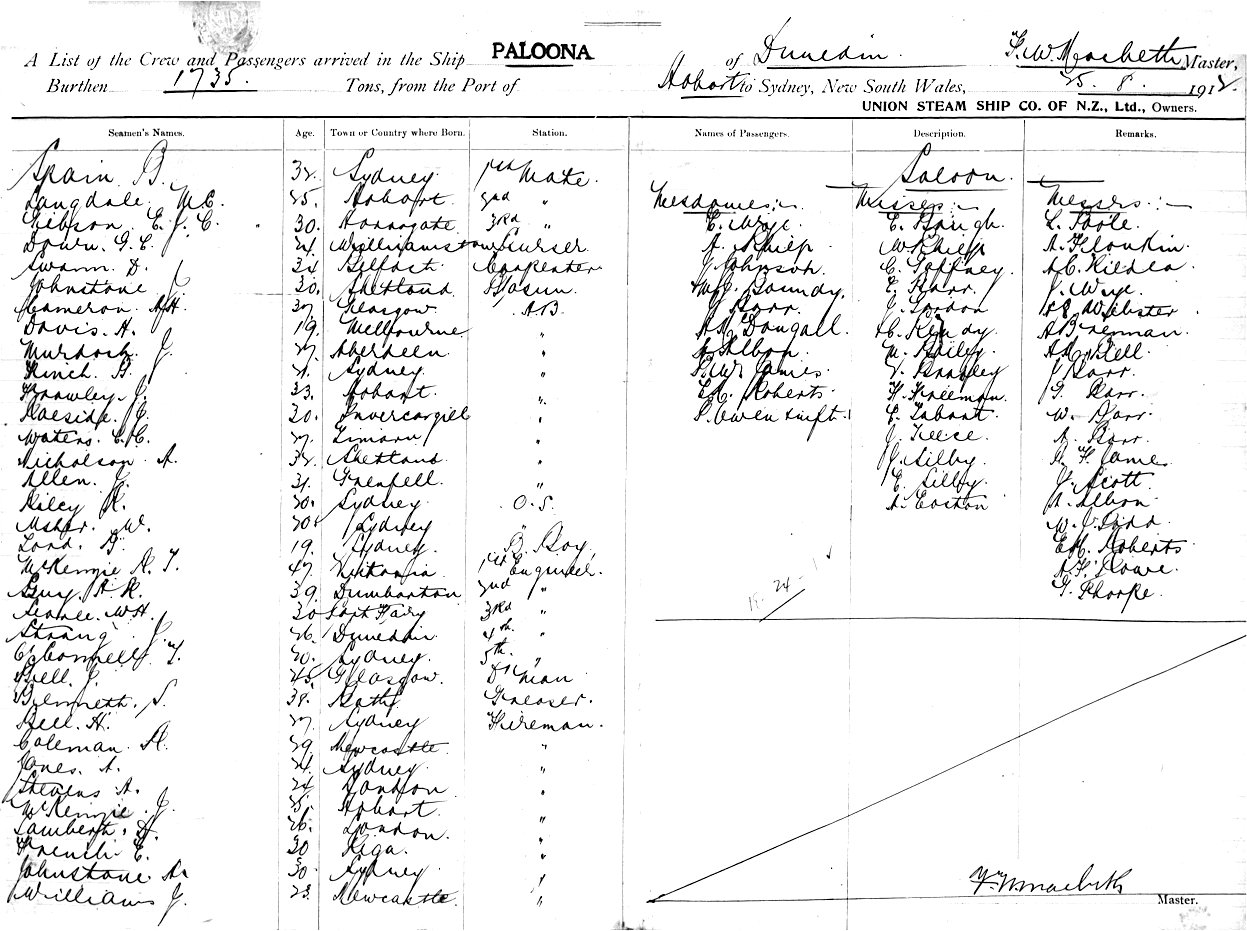 A List of the Crew and Passengers arrived in the Ship PALOONA of Dunedin F. W. Macbeth Master,
Burthen 1735. Tons, from the Port of Hobart to Sydney, New South Wales, 25. 8. 1912.
UNION STEAM SHIP CO. OF N.Z., Ltd., Owners.
Seamen's Names. Age. Town or Country where Born. Station. Names of Passengers. Description. Remarks.
Saloon.
Spain B. 32. Sydney 1st Mate.
Langdale. M.C. 25. Hobart 2nd "
Gibson. E. J. C. 30. Harrogate 3rd "
Down. G. C. 24 Williamstown Purser
Swann. D. 34 Belfast Carpenter
Johnstone J 30. Shetland Bosun.
Cameron. A.H. 37. Glasgow. A.B.
Davis. A. 19. Melbourne "
Murdoch. J. 27. Aberdeen. "
Kinch. B. Sydney. "
Frawley. J. 33. Hobart. "
Raeside. J. 20. Invercargill "
Waters. C.C. 27. Timaru "
Nicholson. A. 32. Shetland "
Allen. J. 31. Grenfell "
Riley R. 20. Sydney O.S.
Usher. W. 20. Sydney "
Lord. B. 19. Sydney. B. Boy.
McKenzie R. T. 47. 1st Engineer.
Guy. A R. 39. Dumbarton 2nd "
Searle. W.H. 30 Port Fairy 3rd "
Strang. J. 26. Dunedin 4th. "
O'Connell. T. 20. Sydney. 5th. "
Bell. J. 45. Glasgow. D' Man
Bennett. S. 39. Bath Greaser.
Bell. H. 27. Sydney Fireman.
Coleman. A. 29. Newcastle. "
Jones. A. 24. Sydney. "
Stevens A. 24 London "
McKenzie. J. Hobart. "
Lambert. D. 26. London. "
French. E. 30 Riga. "
Johnstone. A. 30. Sydney "
Williams J. 23. Newcastle. "
Mesdames:-
E. Wye.
A. Philp
J. Johnson.
W.J. Boundy.
J. Barr.
A. McDougall.
A. Albon.
F.W. James.
E.C. Roberts.
P. Owen Swift.
Misses:-
E. Baugh.
W. Philp
C. Gaffney.
E. Barr.
J. Gordon
C. Kendy
M. Bailey.
V. Bradley
F. Freeman.
E. Tabart.
J. Reese.
J. Silby.
E. Silby.
A. Easton
Messrs:-
L. Poole.
A. C. Kildea.
J. Wye.
Webster
A. Brennan.
A. C. Bell.
J. Barr.
G. Barr.
W. Barr.
A. Barr.
F. James
J. Scott.
A. Albon
W. J. Kidd.
E.C. Roberts.
A. F. Rowe.
G. Thorpe.
24 - 1
F. W. Macbeth
Master.